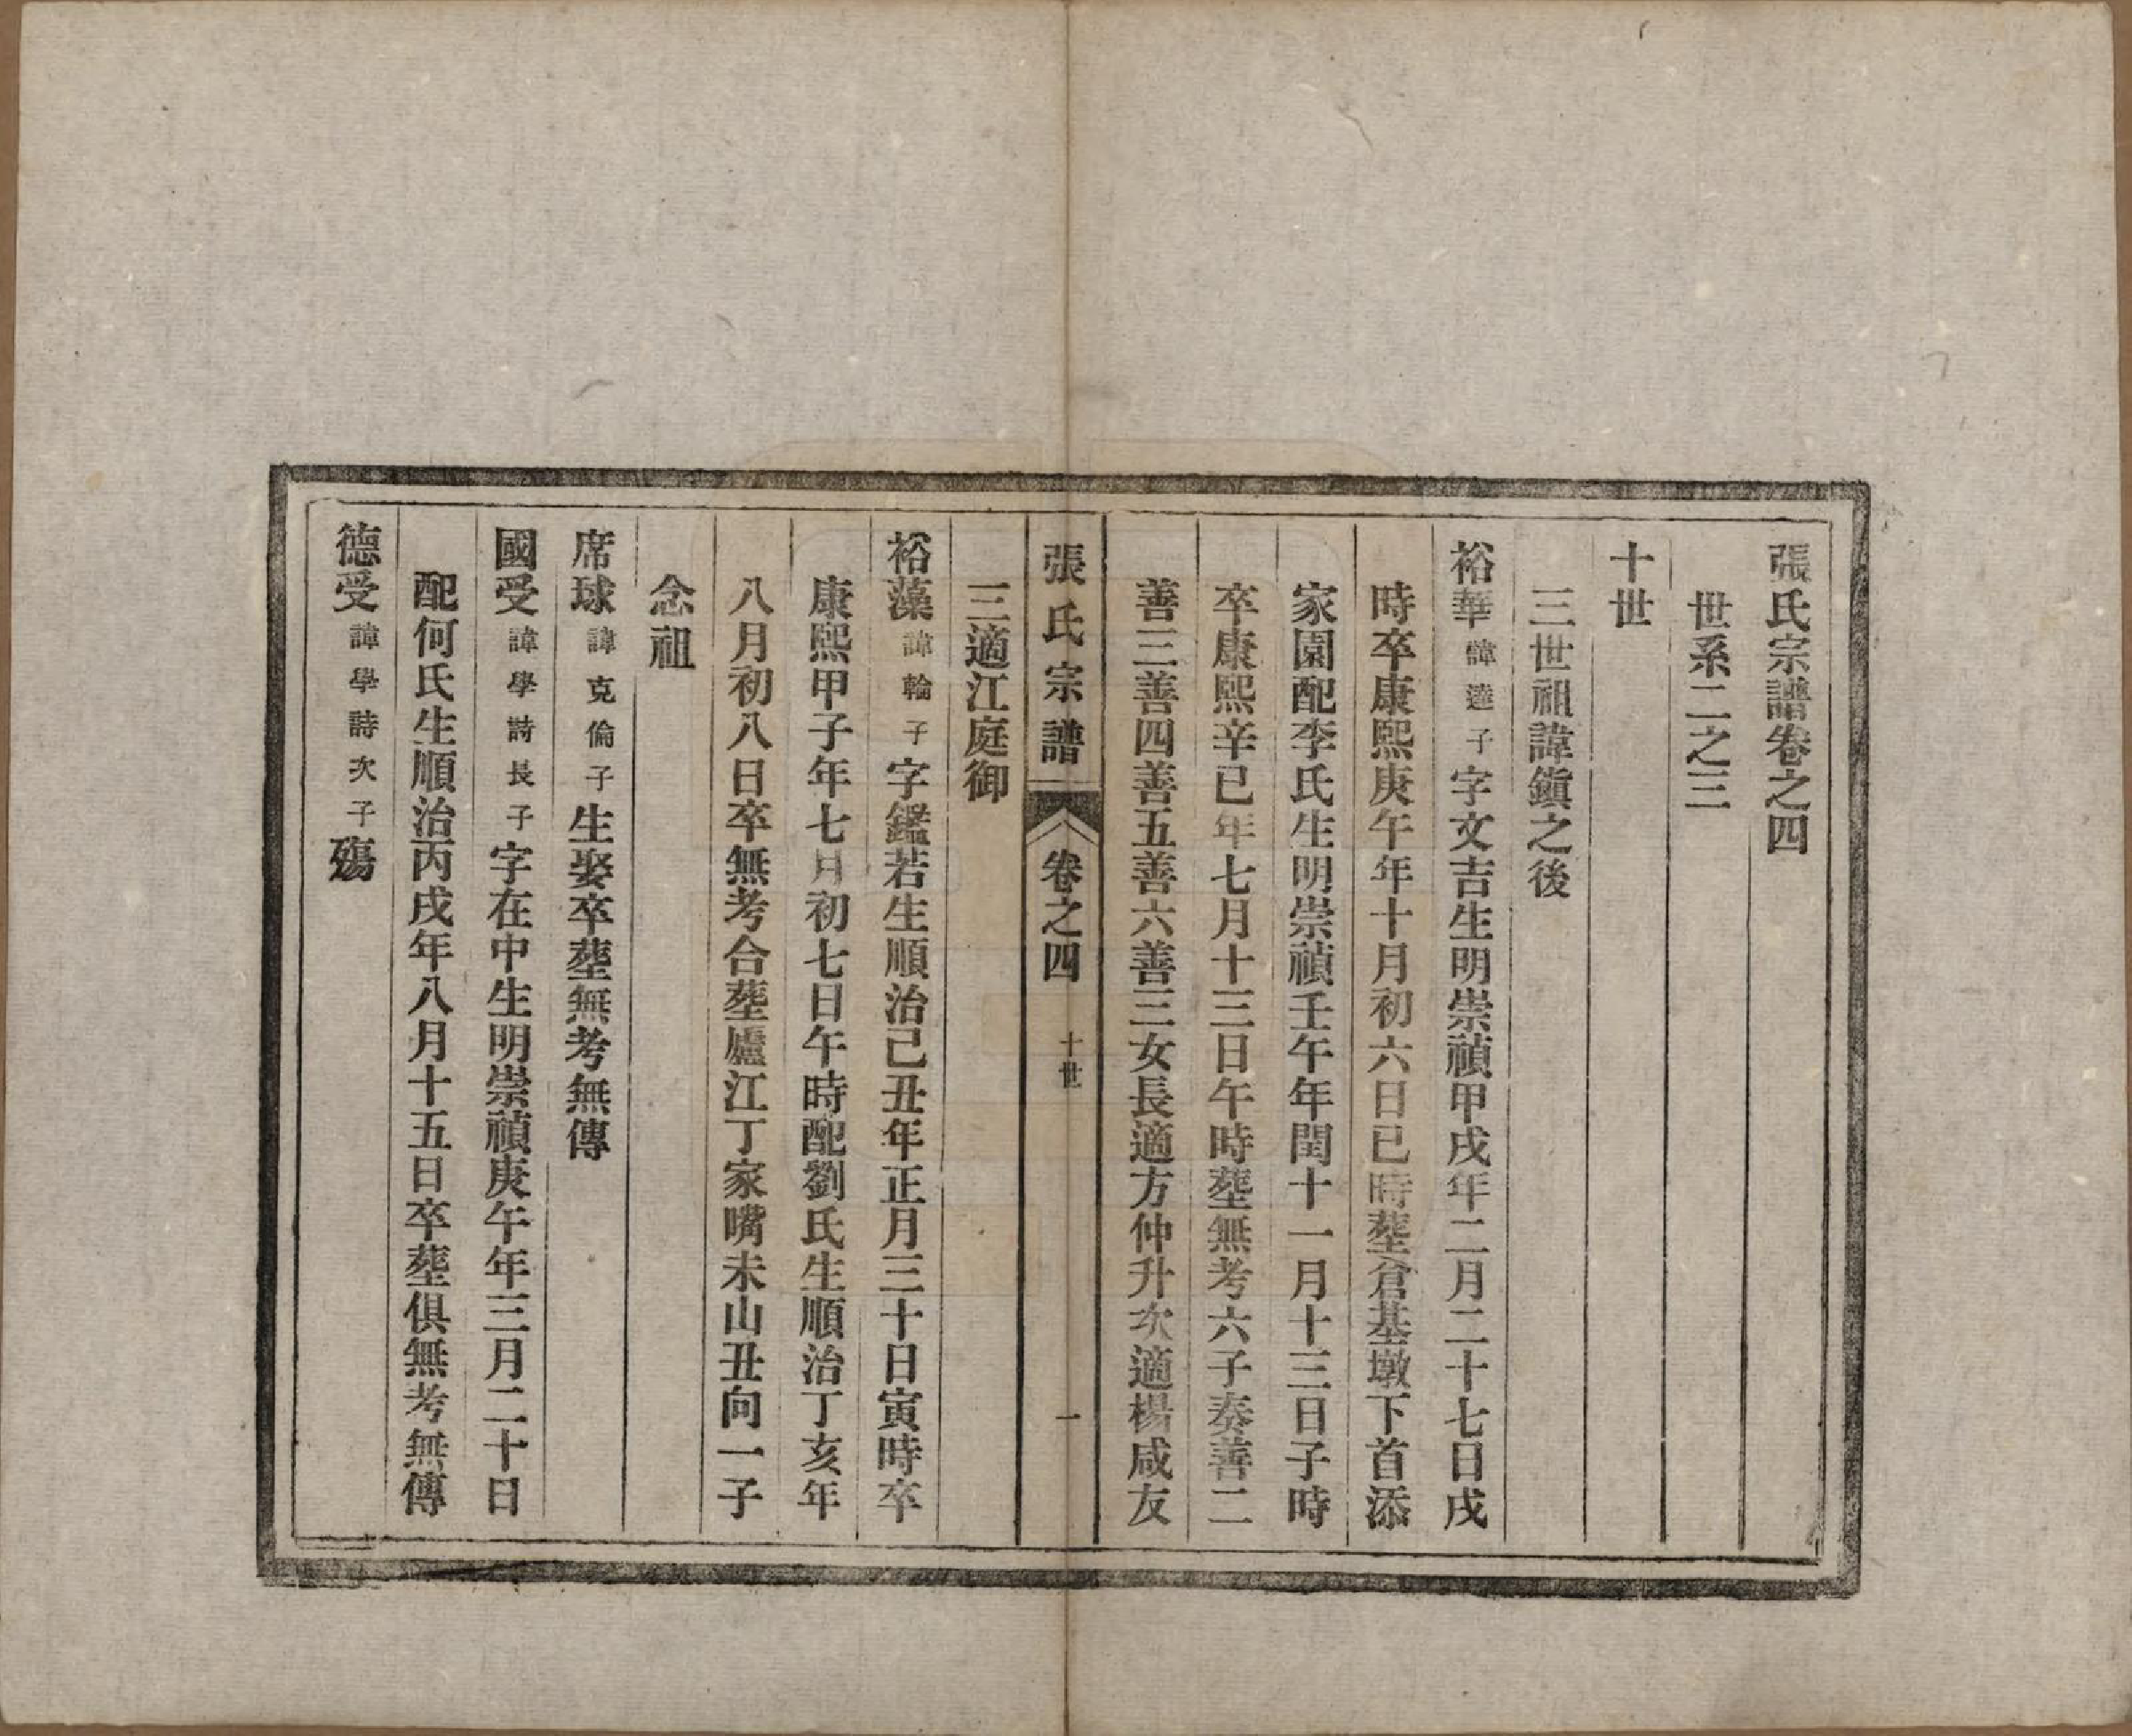 張氏宗譜卷之四
世系二之三
十世
三世祖諱鎮之後
裕華諱達子字文吉生明崇禎甲戌年二月二十七日戌
時卒康熙庚午年十月初六日巳時塟倉基墩下首添
家園配李氏生明崇禎壬午年閏十一月十三日子時
卒康熙辛巳年七月十三日午時塟無考六子奏善二
善三善四善五善六善三女長適方仲升次適楊咸友
張氏宗譜 卷之四 十世 一
三適江庭御
裕藻諱輪子字鑑若生順治己丑年正月三十日寅時卒
康熙甲子年七月初七日午時配劉氏生順治丁亥年
八月初八日卒無考合塟廬江丁家嘴未山丑向一子
念祖
席球諱克倫子生娶卒塟無考無傳
國受諱學詩長子字在中生明崇禎庚午年三月二十日
配何氏生順治丙戌年八月十五日卒塟俱無考無傳
德受諱學詩次子殤